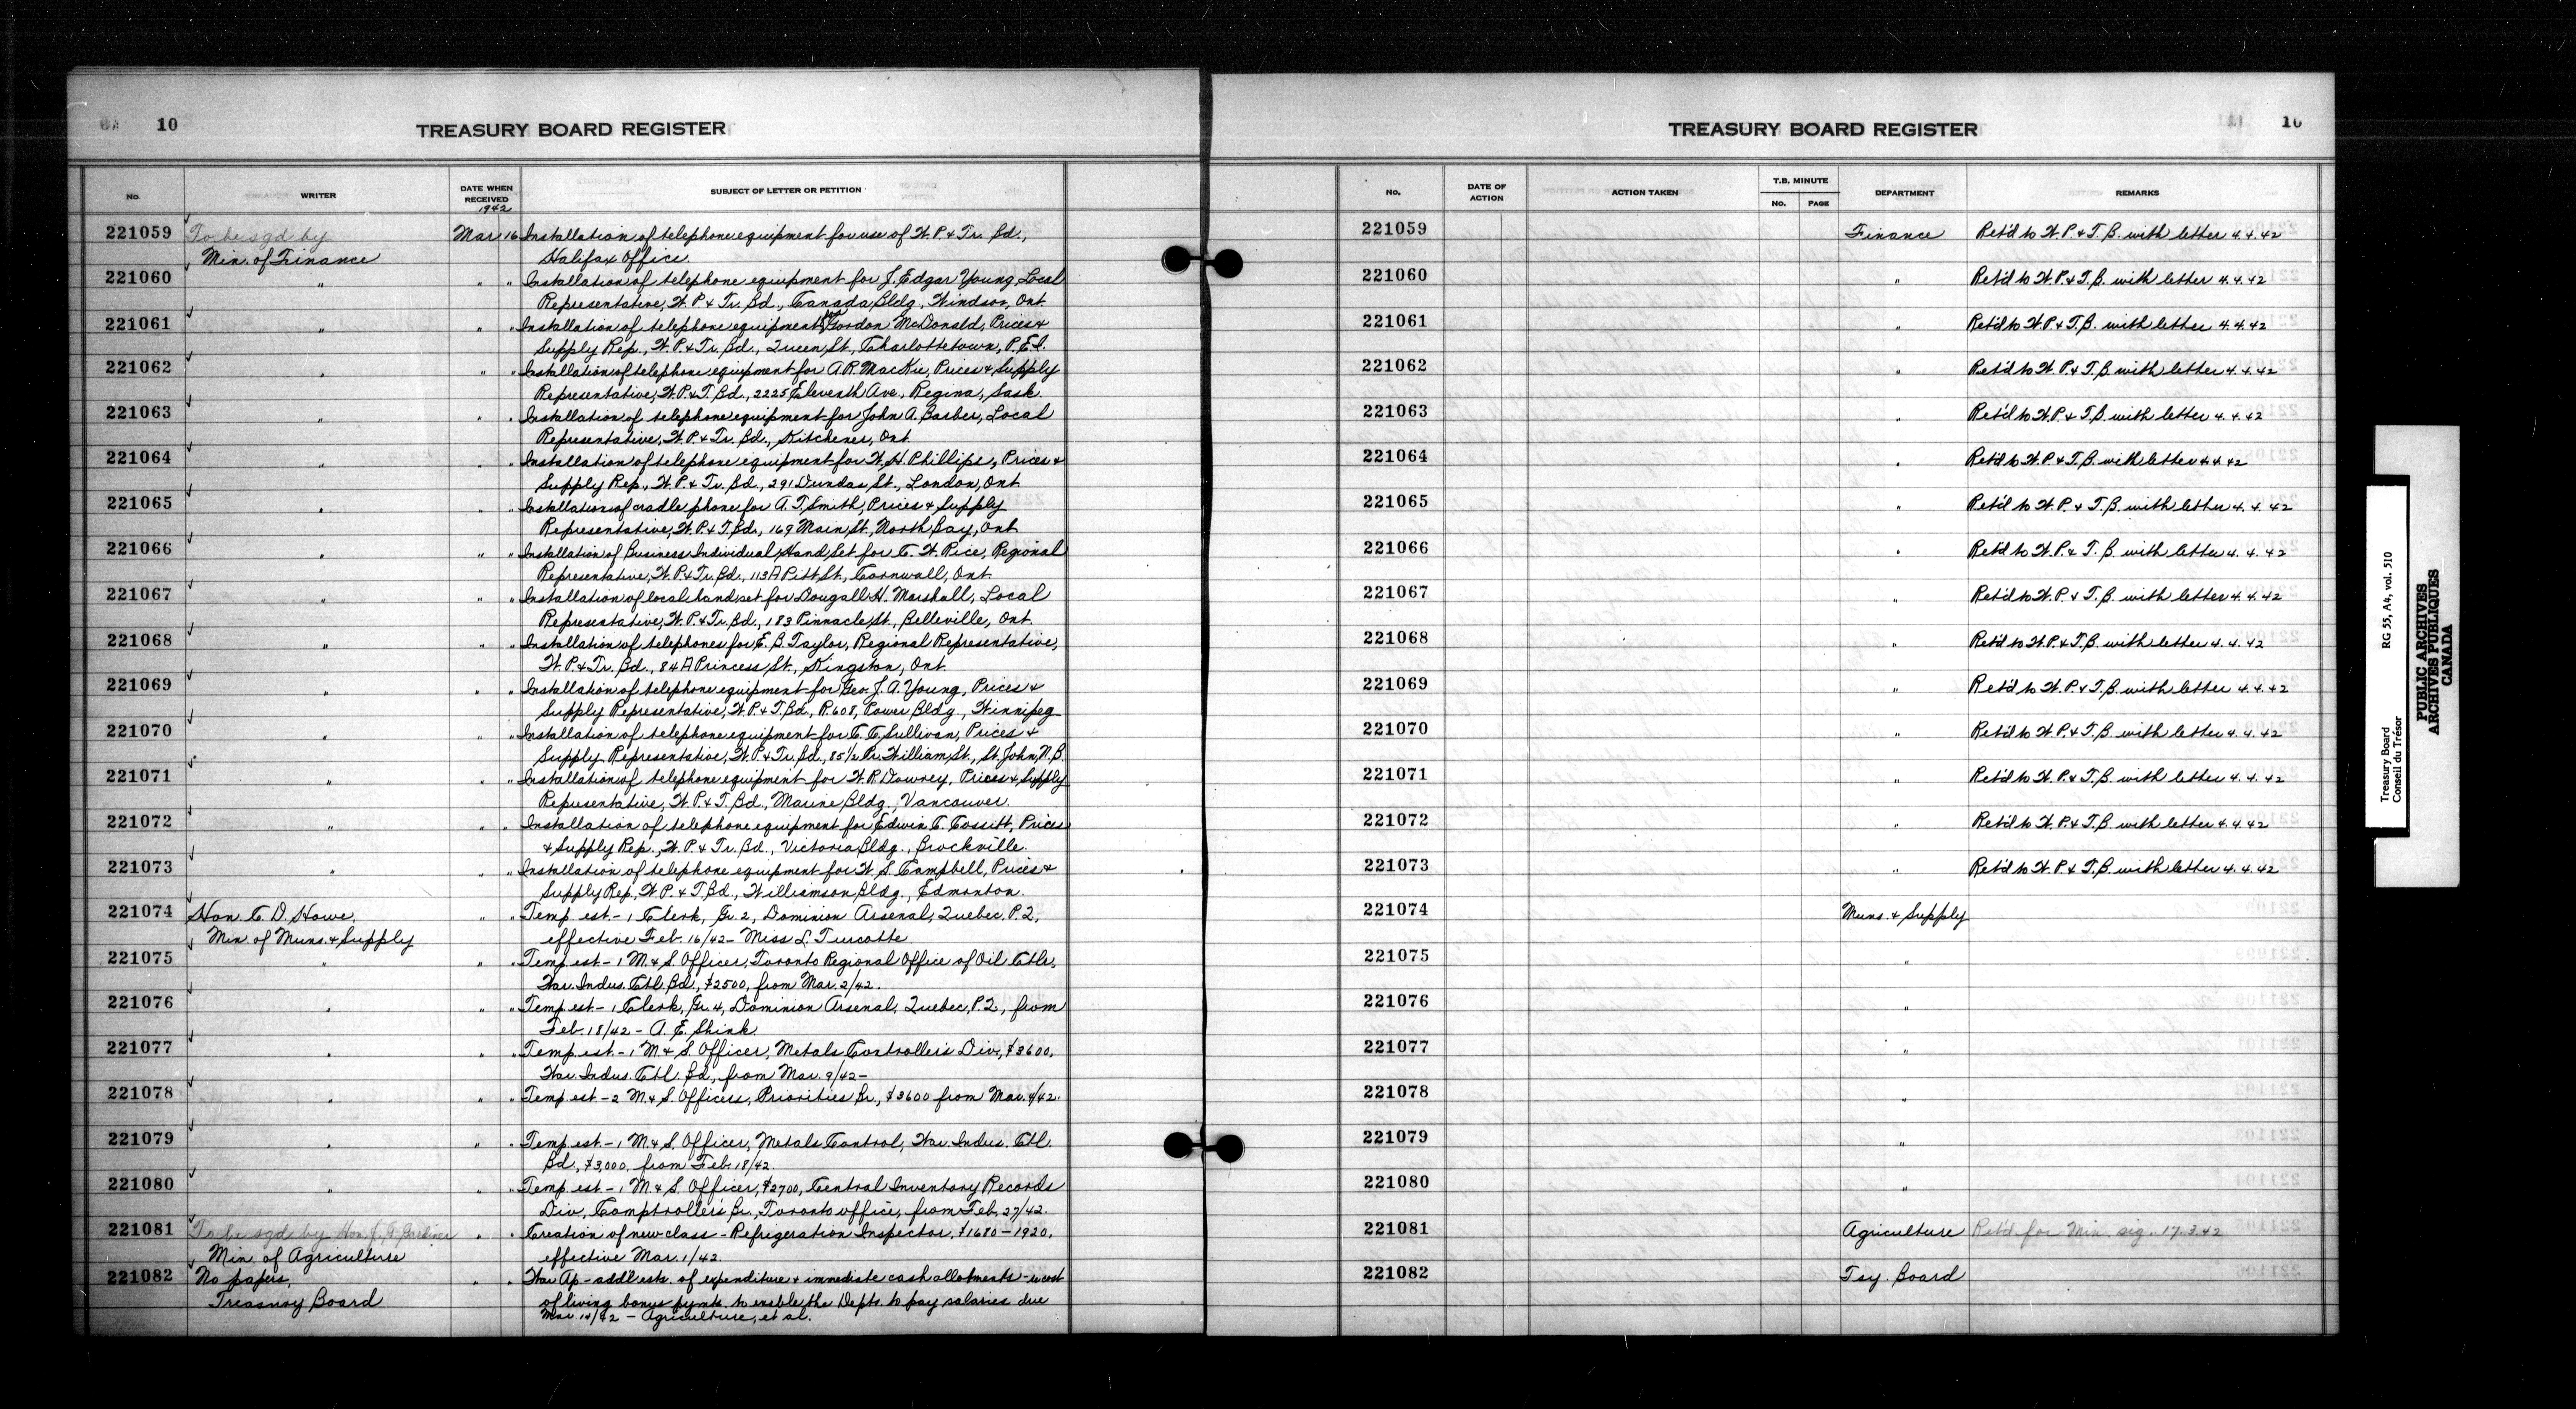 10
TREASURY BOARD REGISTER
No. WRITER DATE WHEN RECEIVED SUBJECT OF LETTER OR PETITION
1942
221059 To be sgd by Mar 16 Installation of telephone equipment for use of W. P. & Tr. Bd.,
Min. of Finance Halifax Office.
221060 " " " Installation of telephone equipment for J. Edgar Young, Local
Representative, W. P. & Tr. Bd., Canada Bldg., Windsor, Ont.
221061 " " " Installation of telephone equipment for Gordon McDonald, Prices &
Supply Rep., W. P. & Tr. Bd., Queen St., Charlottetown, P.E.I.
221062 " " " Installation of telephone equipment for A. R. MacKie, Prices & Supply
Representative, W. P. & T. Bd., 2225 Eleventh Ave., Regina, Sask.
221063 " " " Installation of telephone equipment for John A. Barber, Local
Representative, W. P. & Tr. Bd., Kitchener, Ont.
221064 " " " Installation of telephone equipment for W. H. Phillips, Prices &
Supply Rep., W. P. & Tr. Bd., 291 Dundas St., London, Ont.
221065 " " " Installation of cradle phone for A. T. Smith, Prices & Supply
Representative, W. P. & T. Bd., 169 Main St., North Bay, Ont.
221066 " " " Installation of Business Individual Hand Set for C. W. Rice, Regional
Representative, W. P. & Tr. Bd., 113A Pitt St., Cornwall, Ont.
221067 " " " Installation of local hand set for Dougall H. Marshall, Local
Representative, W. P. & Tr. Bd., 183 Pinnacle St., Belleville, Ont.
221068 " " " Installation of telephones for E. B. Taylor, Regional Representative,
W. P. & Tr. Bd., 84A Princess St., Kingston, Ont.
221069 " " " Installation of telephone equipment for Geo. J. A. Young, Prices &
Supply Representative, W. P. & T. Bd., R. 608, Power Bldg., Winnipeg
221070 " " " Installation of telephone equipment for C. C. Sullivan, Prices &
Supply Representative, W. P. & Tr. Bd., 85½ Pr. William St., St. John, N.B.
221071 " " " Installation of telephone equipment for W. R. Dowrey, Prices & Supply
Representative, W. P. & T. Bd., Marine Bldg., Vancouver.
221072 " " " Installation of telephone equipment for Edwin C. Cossitt, Prices
& Supply Rep., W. P. & Tr. Bd., Victoria Bldg., Brockville.
221073 " " " Installation of telephone equipment for W. S. Campbell, Prices &
Supply Rep., W. P. & T. Bd., Williamson Bldg., Edmonton.
221074 Hon. C. D. Howe, " " Temp. est. - 1 Clerk, Gr. 2, Dominion Arsenal, Quebec, P.Q.,
Min. of Muns. & Supply effective Feb. 16/42 - Miss L. Turcotte.
221075 " " " Temp. est. - 1 M. & S. Officer, Toronto Regional Office of Oil Ctlr.,
War. Indus. Ctl. Bd., $2500, from Mar. 2/42.
221076 " " " Temp. est. - 1 Clerk, Gr. 4, Dominion Arsenal, Quebec, P.Q., from
Feb. 18/42 - A. E. Shink
221077 " " " Temp. est. - 1 M. & S. Officer, Metals Controller's Div., $3600,
War. Indus. Ctl. Bd., from Mar. 9/42 -
221078 " " " Temp. est. - 2 M. & S. Officers, Priorities Br., $3600 from Mar. 4/42.
221079 " " " Temp. est. - 1 M. & S. Officer, Metals Control, War. Indus. Ctl.
Bd., $3,000, from Feb. 18/42.
221080 " " " Temp. est. - 1 M. & S. Officer, $2700, Central Inventory Records
Div., Comptroller's Br., Toronto office, from Feb. 27/42.
221081 To be sgd by Hon. J. G. Gardiner " " Creation of new class - Refrigeration Inspector, $1680 - 1920,
Min. of Agriculture effective Mar. 1/42.
221082 No papers, " " War Ap. - addl ests. of expenditure & immediate cash allotments - re cost
Treasury Board of living bonus pymts. to enable the Depts. to pay salaries due
Mar. 15/42 - Agriculture, et al.
10
TREASURY BOARD REGISTER
No. DATE OF ACTION ACTION TAKEN T.B. MINUTE No. PAGE DEPARTMENT REMARKS
221059 Finance Ret'd to W. P. & T. B. with letter 4.4.42
221060 " Ret'd to W. P. & T. B. with letter 4.4.42
221061 " Ret'd to W. P. & T. B. with letter 4.4.42
221062 " Ret'd to W. P. & T. B. with letter 4.4.42
221063 " Ret'd to W. P. & T. B. with letter 4.4.42
221064 " Ret'd to W. P. & T. B. with letter 4.4.42
221065 " Ret'd to W. P. & T. B. with letter 4.4.42
221066 " Ret'd to W. P. & T. B. with letter 4.4.42
221067 " Ret'd to W. P. & T. B. with letter 4.4.42
221068 " Ret'd to W. P. & T. B. with letter 4.4.42
221069 " Ret'd to W. P. & T. B. with letter 4.4.42
221070 " Ret'd to W. P. & T. B. with letter 4.4.42
221071 " Ret'd to W. P. & T. B. with letter 4.4.42
221072 " Ret'd to W. P. & T. B. with letter 4.4.42
221073 " Ret'd to W. P. & T. B. with letter 4.4.42
221074 Muns. & Supply
221075 "
221076 "
221077 "
221078 "
221079 "
221080 "
221081 Agriculture Ret'd for Min. sig. 17.3.42
221082 Tsy. Board
Treasury Board RG 55, A4, vol. 510
Conseil du Trésor
PUBLIC ARCHIVES
ARCHIVES PUBLIQUES
CANADA